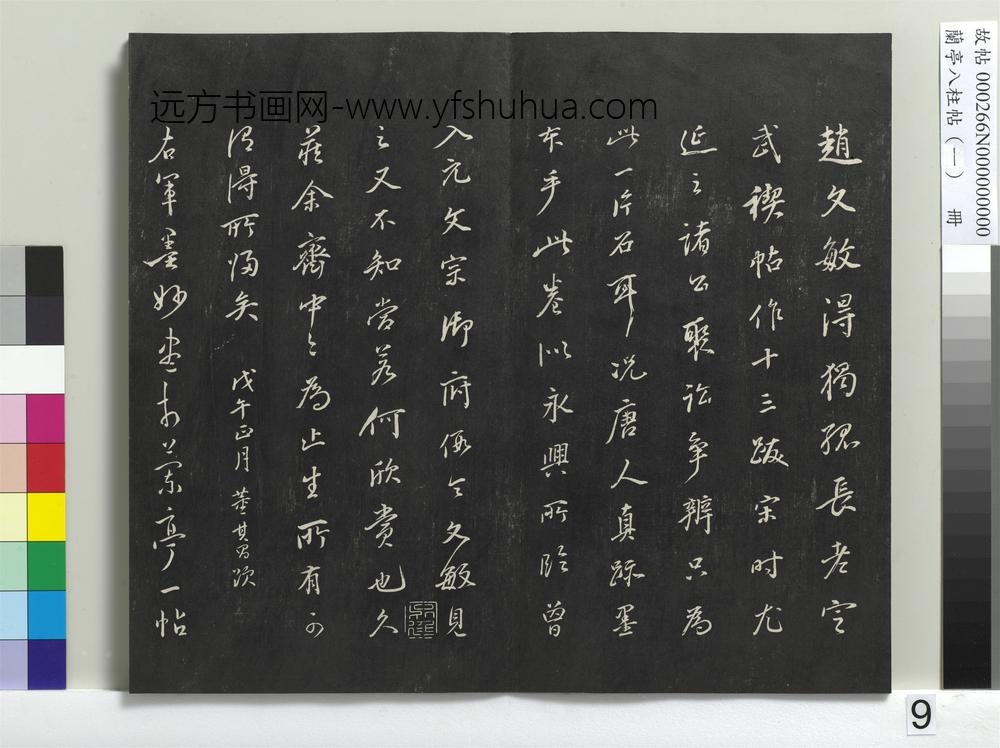 趙文敏得獨孤長老定
武禊帖作十三跋宋時尤
延之諸公聚訟爭辨只為
此一片石耳況唐人真跡墨
本乎此卷似永興所臨曾
入元文宗御府假令文敏見
之又不知當若何欣賞也久
藏余齋中之為止生所有可
謂得所歸矣 戊午正月 董其昌題
右軍墨妙盡於蘭亭一帖
远方书画网-www.yfshuhua.com
故帖 000266N000000000
蘭亭八柱帖(一) 冊
9